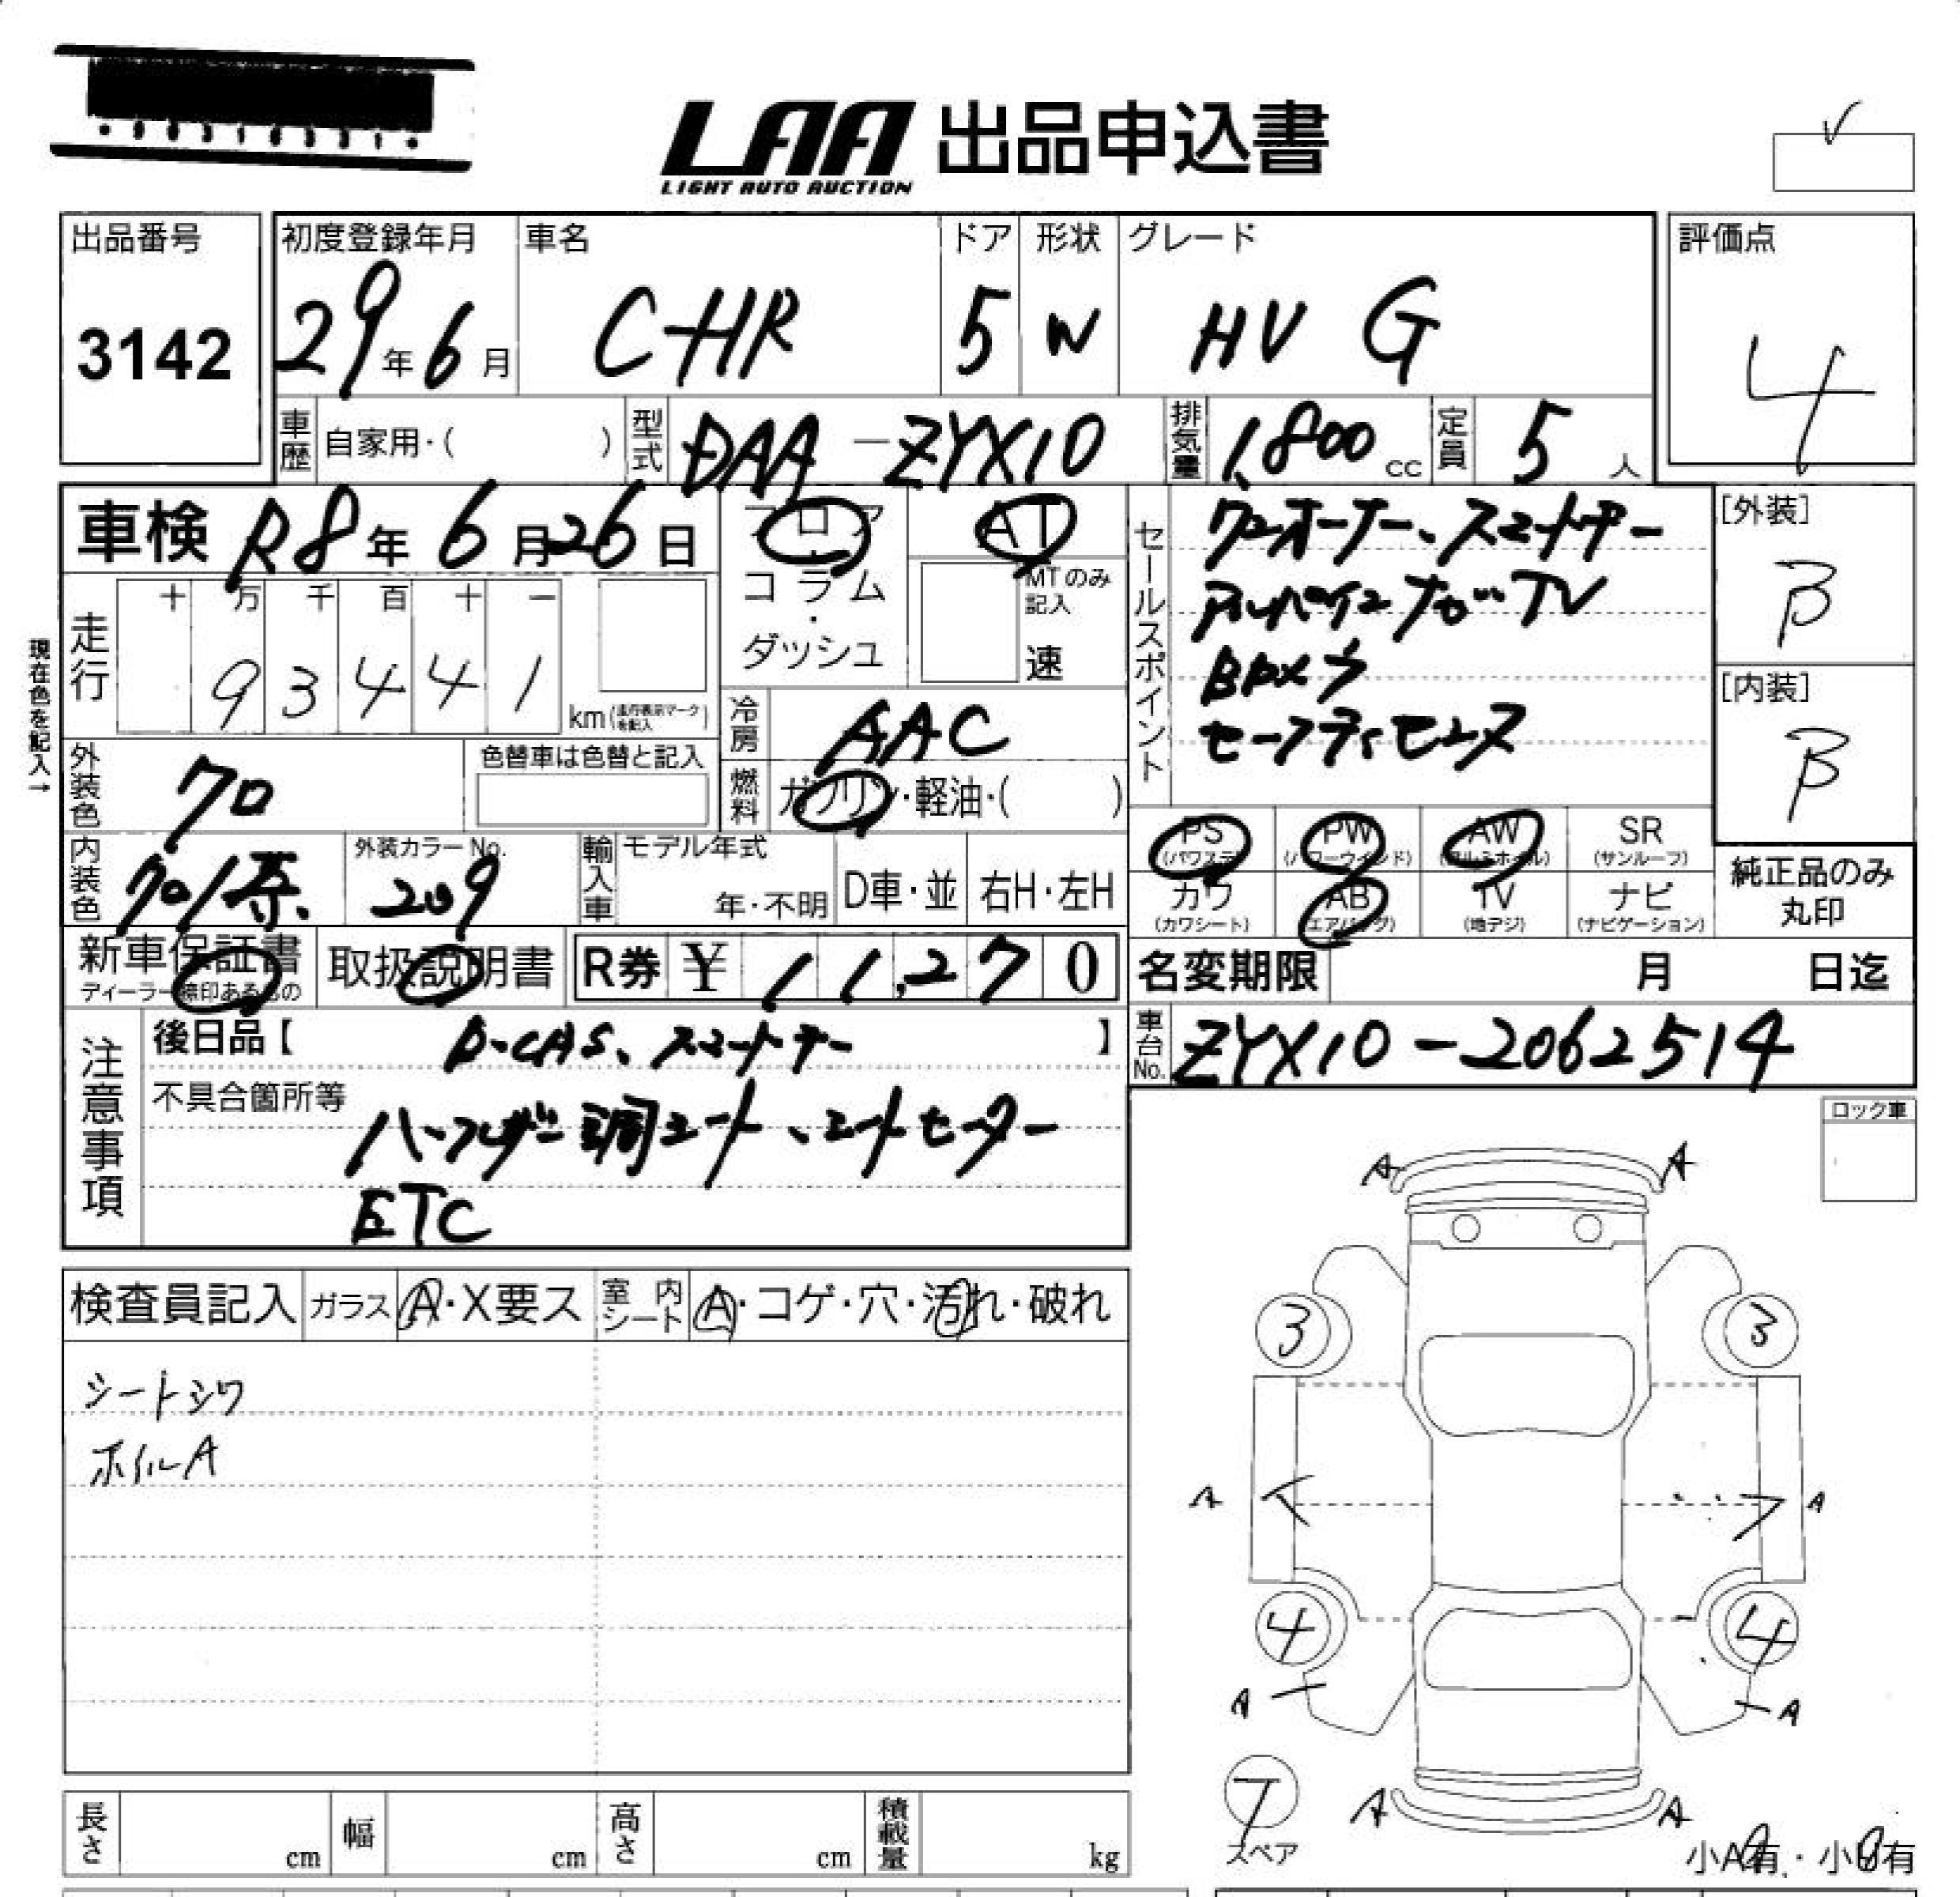 LAA 出品申込書
LIGHT AUTO AUCTION
V
出品番号 3142
初度登録年月 29年6月
車名 C-HR
ドア 5
形状 W
グレード HV G
評価点 4
車歴 自家用・( )
型式 DAA-ZYX10
排気量 1,800cc
定員 5人
車検 R8年6月26日
フロア・コラム・ダッシュ
AT
MTのみ記入
速
セールスポイント
ワンオーナー、スマートキー
アルパインナビ・TV
Bカメラ
セーフティセンス
[外装] B
[内装] B
現在色を記入→
走行 十 万 千 百 十 一
93441
km(走行表示マークを記入)
冷房 AAC
燃料 ガソリン・軽油・( )
外装色 クロ
色替車は色替と記入
内装色 クロ/茶
外装カラーNo. 209
輸入車 モデル年式
年・不明 D車・並 右H・左H
PS (パワステ) PW (パワーウインド) AW (アルミホイル) SR (サンルーフ)
カワ (カワシート) AB (エアバッグ) TV (地デジ) ナビ (ナビゲーション)
純正品のみ丸印
新車保証書
ディーラー捺印あるもの
取扱説明書
R券 ¥11,270
名変期限 月 日迄
車台No. ZYX10-2062514
注意事項
後日品【D-CAS、スマートキー】
不具合箇所等
ハーフレザー調シート、シートヒーター
ETC
ロック車
検査員記入 ガラス A・X要ス 室内シート A・コゲ・穴・汚れ・破れ
シートシワ
ホイルA
A A
3 3
A A
4 4
A A
スペア
A A
小A有・小U有
長さ cm 幅 cm 高さ cm 積載量 kg